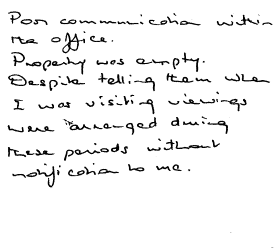 Poor communication within
the office.
Property was empty.
Despite telling them when
I was visiting viewings
were arranged during
these periods without
notification to me.